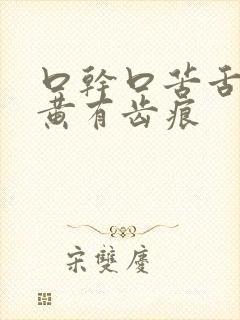 口幹口苦舌
黄有齿痕
宋雙慶